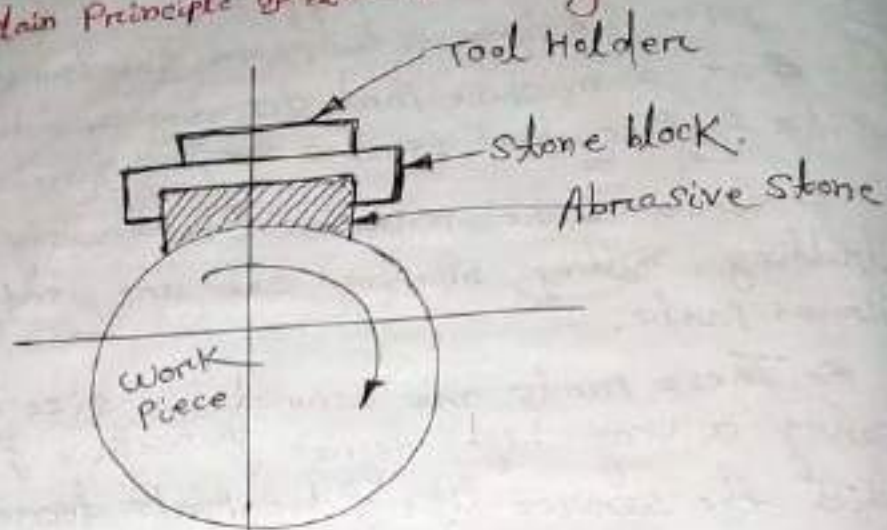 Principle of
Tool Holder
Stone block.
Abrasive Stone
Work
Piece